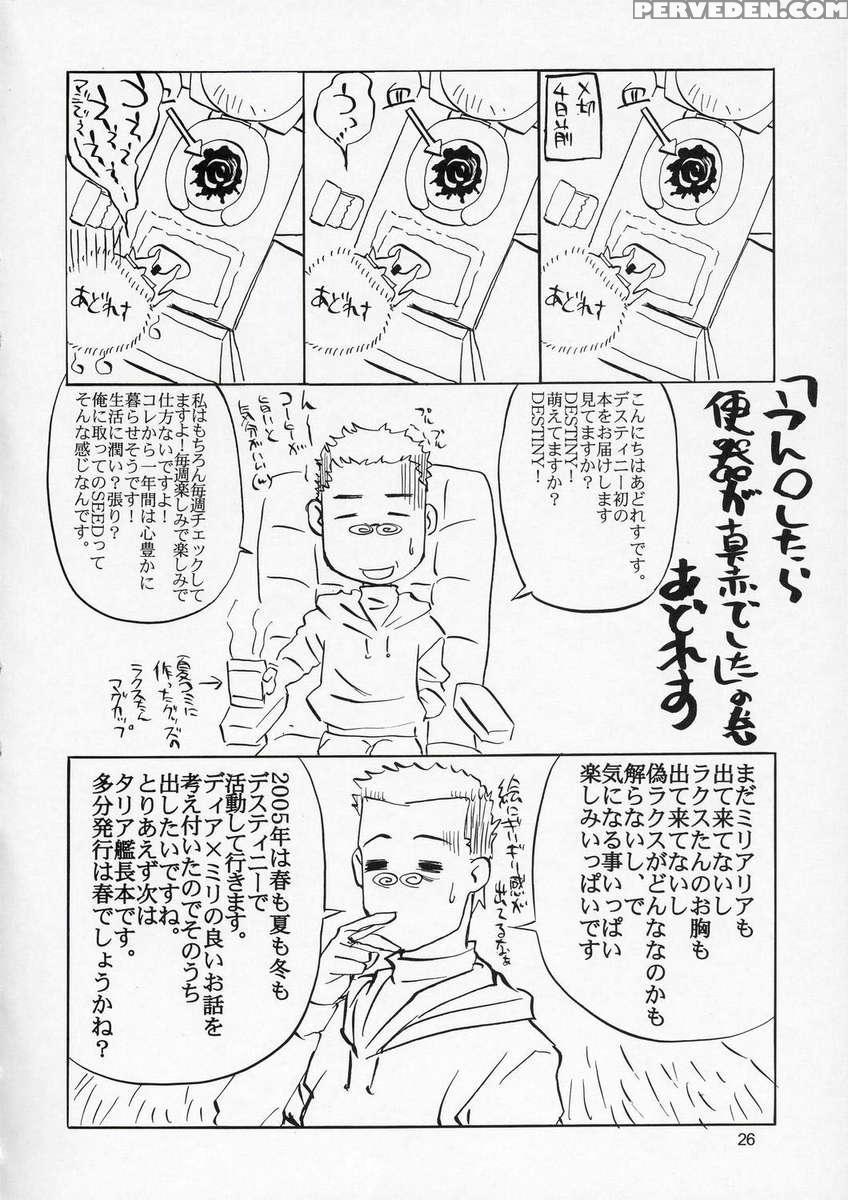 PERVEDEN.COM
〆切
4日前
血
あどれす
血
うっ
あどれす
血
あどれす
「うん〇したら
便器が真赤でした」の巻
あどれす
こんにちはあどれすです。
デスティニー初の
本をお届けします
見てますか?
DESTINY!
萌えてますか?
DESTINY!
プルプル
プルプル
コーヒーが
旨いと
気分がいい
私はもちろん毎週チェックして
ますよ!毎週楽しみで楽しみで
仕方ないですよ!
コレから一年間は心豊かに
暮らせそうです!
生活に潤い?張り?
俺に取ってのSEEDって
そんな感じなんです。
夏コミに
作ったグッズの
ラクスたん
マグカップ
まだミリアリアも
出て来てないし
ラクスたんのお胸も
出て来てないし
偽ラクスがどんななのかも
解らないし、で
気になる事いっぱい
楽しみいっぱいです
絵にギーギー感が
出てるなぁ
2005年は春も夏も冬も
デスティニーで
活動して行きます。
ディア×ミリの良いお話を
考え付いたのでそのうち
出したいですね。
とりあえず次は
タリア艦長本です。
多分発行は春でしょうかね?
26